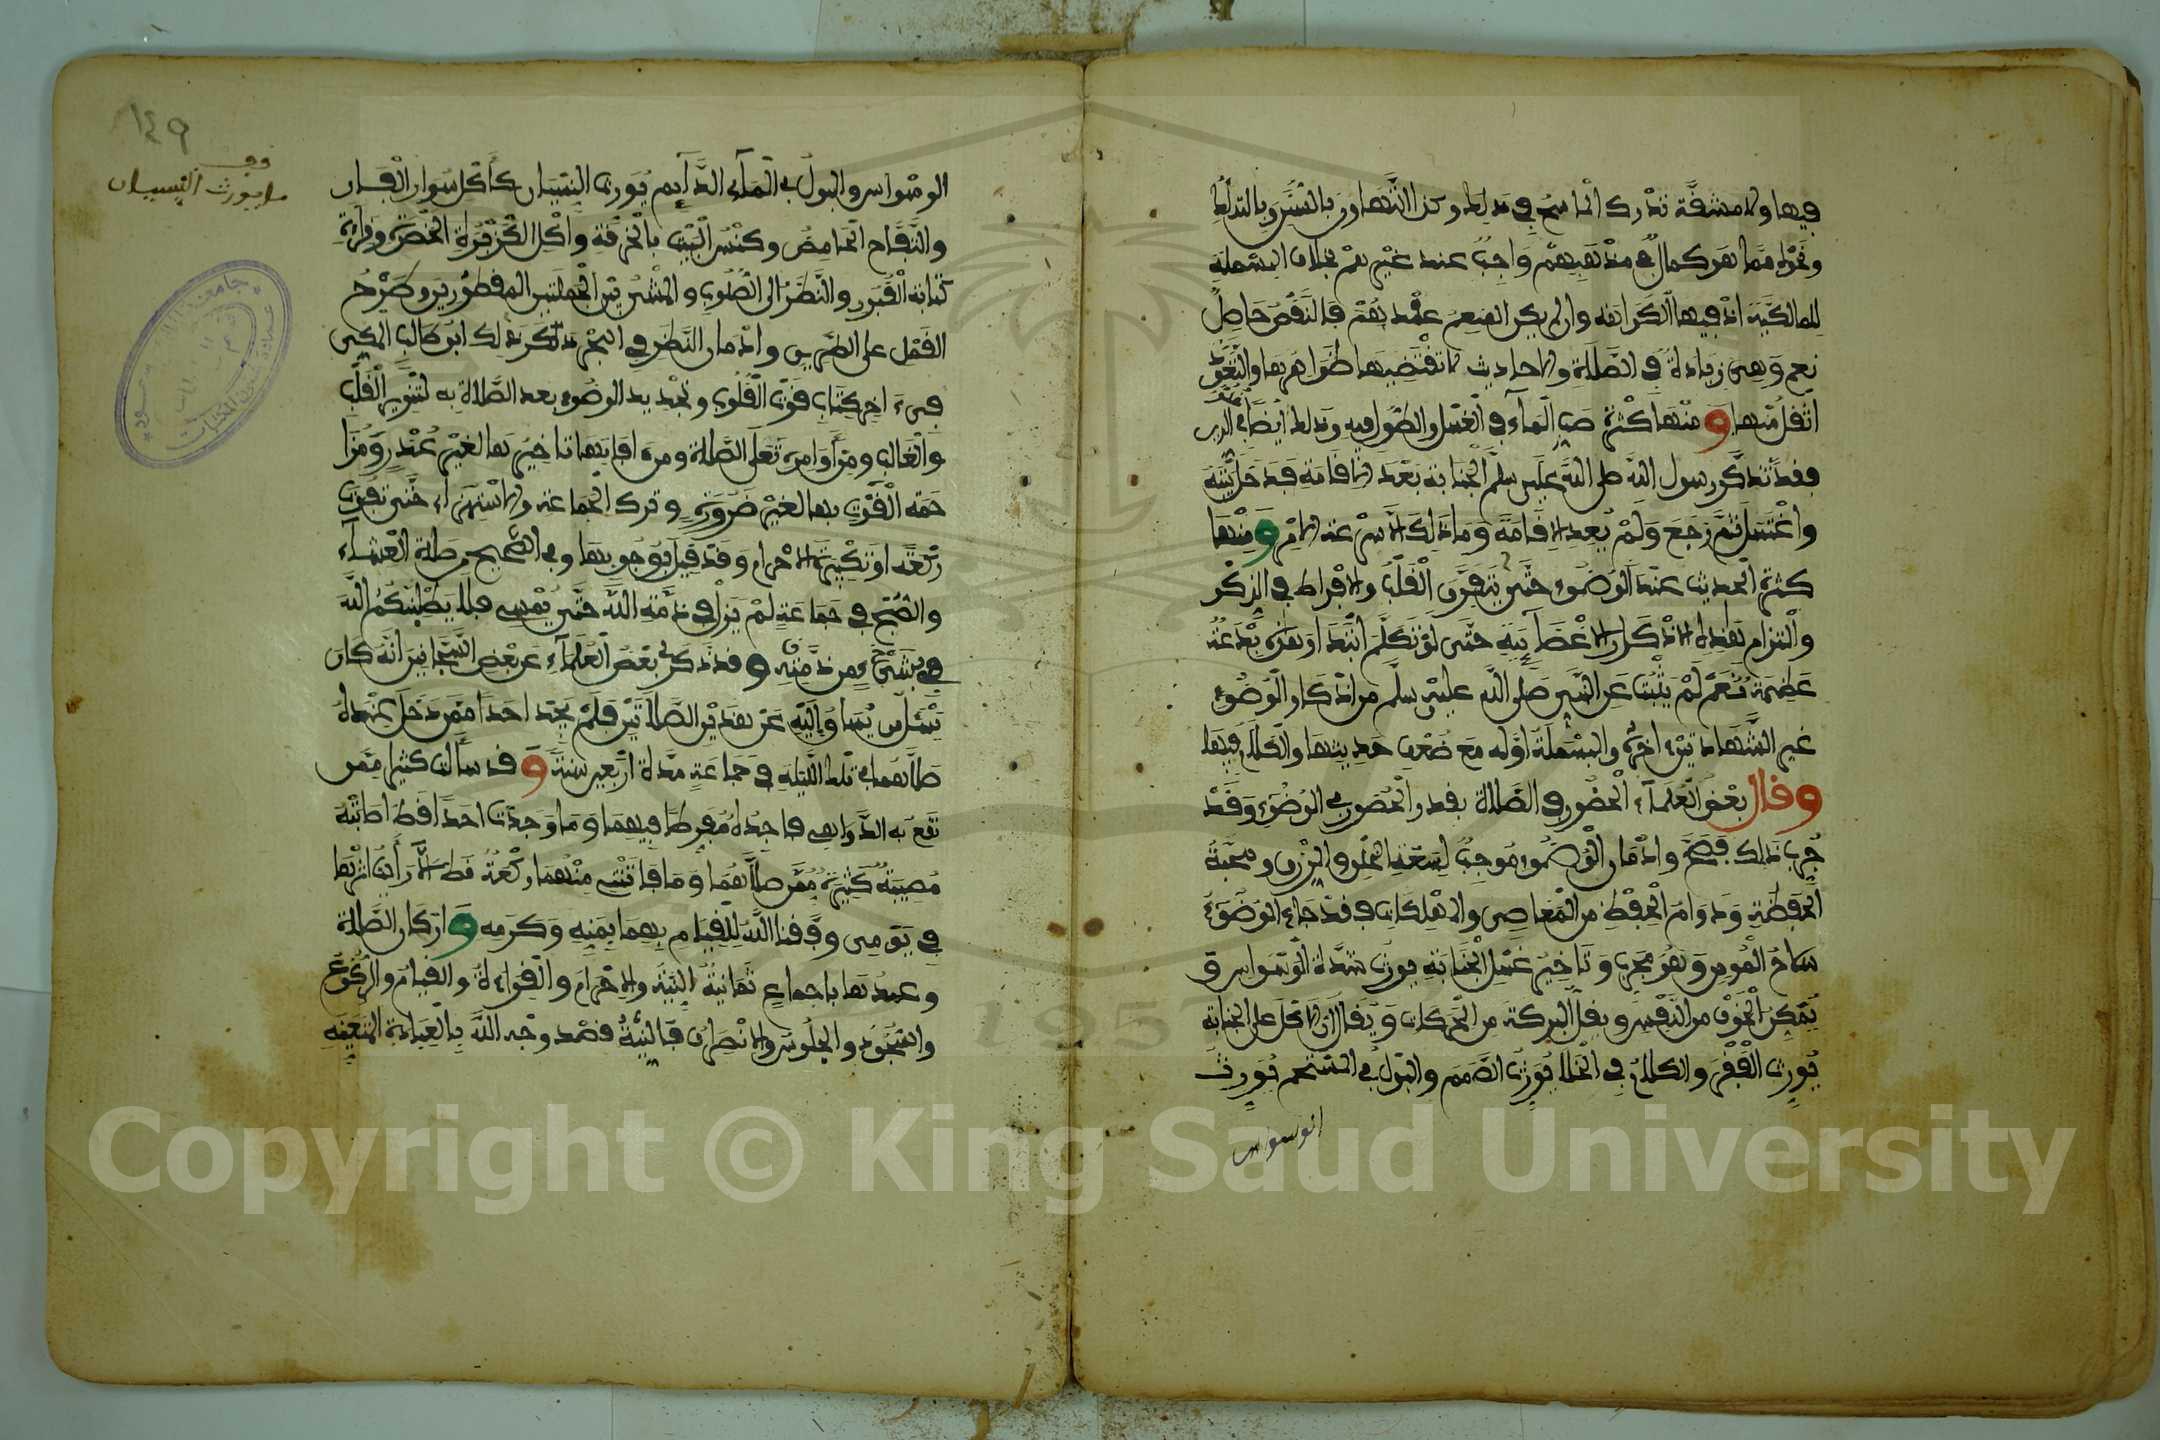 فيها ولا مشقة تدرك الماسح في ذلك وكذا التهاون بالسنن وبالتدلك
ونحوه مما هو كمال في مذهبهم واجب عند غيرهم بخلاف البسملة
للمالكية اذ فيها الكراهة وان لم يكن الصنع عندهم فالنقص حاصل
نعم وهي زيادة في الصلاة ولاحاديث لا تقتضيها ظواهرها والتعوذ
اثقل منها ومنها كثرة صب الماء في الغسل والطول فيه وذلك ايضا في
فقد تذكر رسول الله صلى الله عليه وسلم الجنابة بعد لاقامة فدخل بيته
واغتسل ثم رجع ولم يعد لاقامة وما ذلك الا سرعة لامر ومنها
كثرة الحديث عند الوضوء حتى يتفرق القلب ولافراط في الذكر
والتزام هذه لاذكار لاعضائية حتى لو تكلم ابتدا وهذه بدعة
عظيمة نعم لم يثبت عن النبي صلى الله عليه وسلم من اذكار الوضوء
غير الشهادتين اخره والبسملة اوله مع ضعف حديثها والكلام فيها
وقال بعض العلماء الحضور في الصلاة بقدر الحضور في الوضوء وقد
جرب ذلك فصح وادمان الوضوء موجب لسعة الخلق والرزق ومحبة
الحفظة ودوام الحفظ من المعاصي والاهلكات فقد جاء الوضوء
سلاح المومن وهو مجرب وتاخير غسل الجنابة يورث شدة الوسواس و
يمكن الخوف من النفس ويقل البركة من الحركات ويقال ان لاكل على الجنابة
يورث الفقر والكلام في الخلا يورث الصمم والبول في المستحم يورث
الوسواس
١٤٩
قف
ما يورث النسيان
الوسواس والبول في الماء الدايم يورث النسيان كأكل سوار الفار
والتفاح الحامض وكنس البيت بالخرقة واكل الكزبرة الخضرة وقراءة
كتابة القبور والنظر الى المصلوب والمشي بين الجملين المقطورين وطرح
القمل على الطريق وادمان النظر في البحر ذكر ذلك ابو طالب المكي
في اخر كتاب قوت القلوب وتجديد الوضوء بعد الصلاة به لتنوير القلب
والغالب ومن اوامره تعلى الصلاة ومن افاتها تاخيرها لغير عذر ومزا
حمة الفوت بها لغير ضرورة وترك الجماعة ولاستهزاء حتى تفوت
ركعة او تكبيرة لاحرام وقد قيل بوجوبها وفي الصحيح من صلى العشاء
والصبح في جماعة لم يزل في ذمة الله حتى يمسي فلا يطلبنكم الله
بشيء من ذمته وقد ذكر لي بعض العلماء عن بعض النيجانيين انه كان
يسئل من يساق اليه عن هذين الصلاتين فلم يجد احدا ممن دخل عنده
صلاهما في تلك الليلة في جماعة مدة اربعين سنة وقد سألت كثيرا ممن
تقع به الدواهي فاجده مفرطا فيهما وما وجدت احدا قط اصابته
مصيبة كثيرة ممن صلاهما وما فاتتني منهما ركعة قط الا رأيت اثرها
في يومي وفقنا الله للقيام بهما بمنه وكرمه واركان الصلاة
وعمدتها باجماع ثمانية النية ولاحرام والقراءة والقيام والركوع
والسجود والجلوس ولانصراف فالنية قصد وجه الله بالعبادة المتعينة
Copyright © King Saud University
1957